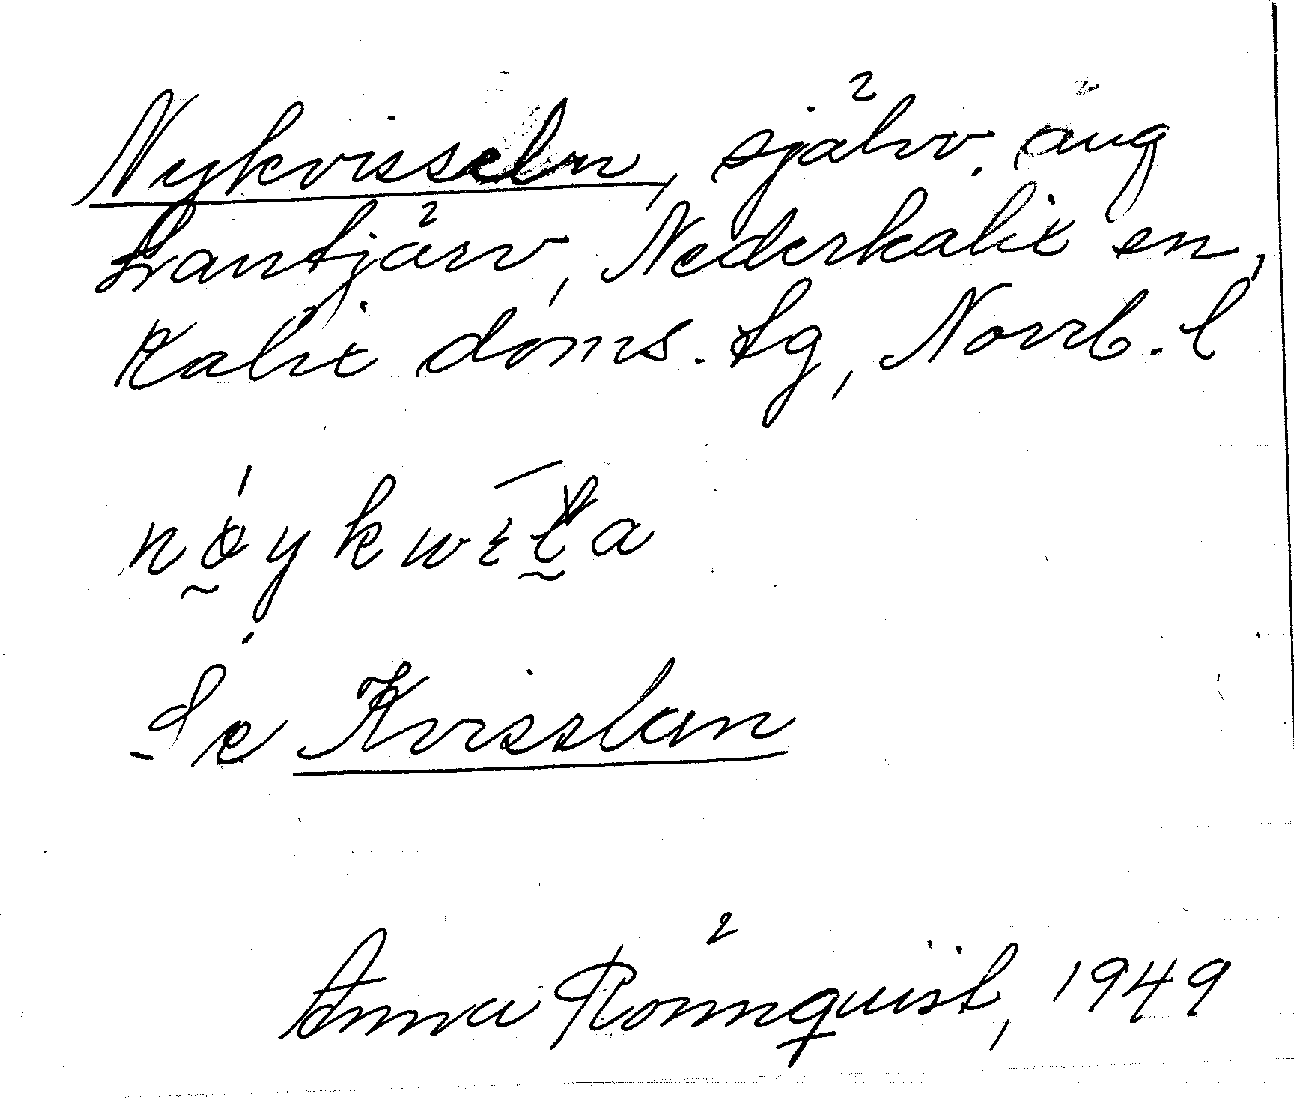 Nykvisseln, självv. äng
Lantjärv, Nederkalix sn,
Kalix doms. tg, Norrb. l
Se Kvisslan
Anna Rönnquist, 1949